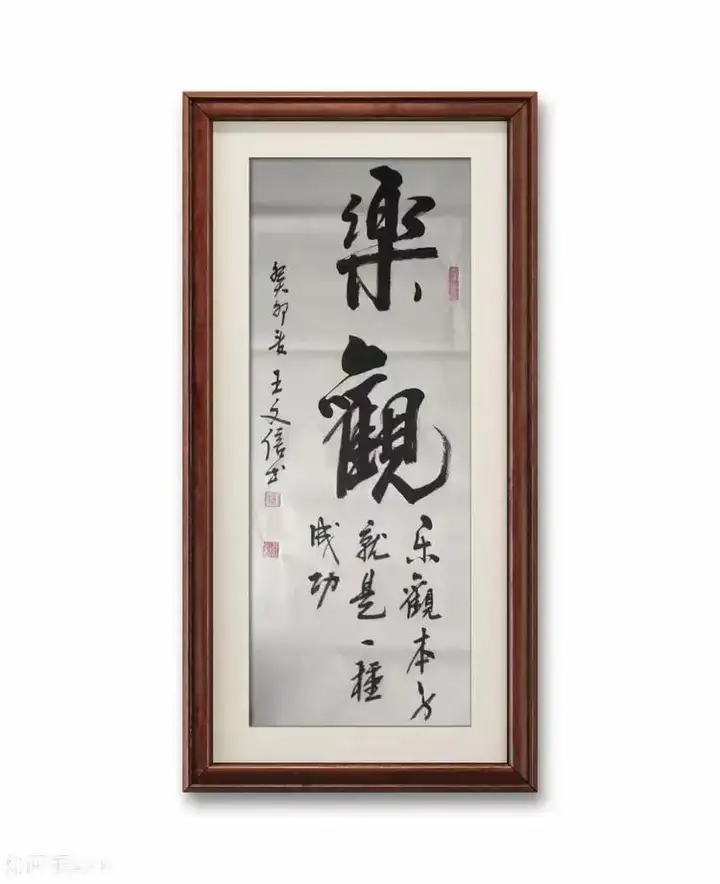 樂觀
乐觀本身
就是一種
成功
癸卯春王文信书